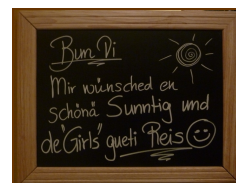 Bun Di
Mir wünsched en
schönä Sunntig und
de "Girls" gueti Reis